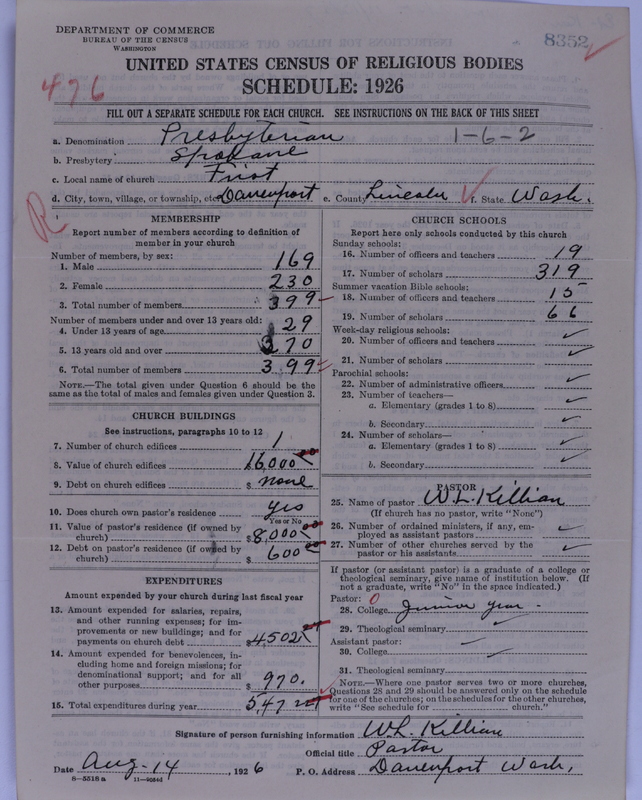 DEPARTMENT OF COMMERCE
BUREAU OF THE CENSUS
WASHINGTON
8352
UNITED STATES CENSUS OF RELIGIOUS BODIES
SCHEDULE: 1926
476
FILL OUT A SEPARATE SCHEDULE FOR EACH CHURCH. SEE INSTRUCTIONS ON THE BACK OF THIS SHEET
a. Denomination Presbyterian 1-6-2
b. Presbytery Spokane
c. Local name of church First
d. City, town, village, or township, etc. Davenport e. County Lincoln f. State Wash.
R
MEMBERSHIP
Report number of members according to definition of
member in your church
Number of members, by sex:
1. Male 169
2. Female 230
3. Total number of members 399
Number of members under and over 13 years old:
4. Under 13 years of age 29
5. 13 years old and over 370
6. Total number of members 399
NOTE.—The total given under Question 6 should be the
same as the total of males and females given under Question 3.
CHURCH BUILDINGS
See instructions, paragraphs 10 to 12
7. Number of church edifices 1
8. Value of church edifices 16,000 00
9. Debt on church edifices $ none
10. Does church own pastor's residence yes
Yes or No
11. Value of pastor's residence (if owned by
church) $8,000 00
12. Debt on pastor's residence (if owned by
church) $ 600 00
EXPENDITURES
Amount expended by your church during last fiscal year
13. Amount expended for salaries, repairs,
and other running expenses; for im-
provements or new buildings; and for
payments on church debt $4502
14. Amount expended for benevolences, in-
cluding home and foreign missions; for
denominational support; and for all
other purposes $ 970.
15. Total expenditures during year 5472
CHURCH SCHOOLS
Report here only schools conducted by this church
Sunday schools:
16. Number of officers and teachers 19
17. Number of scholars 319
Summer vacation Bible schools:
18. Number of officers and teachers 15
19. Number of scholars 66
Week-day religious schools:
20. Number of officers and teachers
21. Number of scholars
Parochial schools:
22. Number of administrative officers
23. Number of teachers—
a. Elementary (grades 1 to 8)
b. Secondary
24. Number of scholars—
a. Elementary (grades 1 to 8)
b. Secondary
PASTOR
25. Name of pastor W. L. Killian
(If church has no pastor, write "None")
26. Number of ordained ministers, if any, em-
ployed as assistant pastors
27. Number of other churches served by the
pastor or his assistants
If pastor (or assistant pastor) is a graduate of a college or
theological seminary, give name of institution below. (If
not a graduate, write "No" in the space indicated.)
Pastor: 0
28. College Junior year.
29. Theological seminary
Assistant pastor:
30. College
31. Theological seminary
NOTE.—Where one pastor serves two or more churches,
Questions 28 and 29 should be answered only on the schedule
for one of the churches; on the schedules for the other churches,
write "See schedule for church."
Signature of person furnishing information W. L. Killian
Official title Pastor
Date Aug-14, 1926 P. O. Address Davenport Wash.
8-5518 a